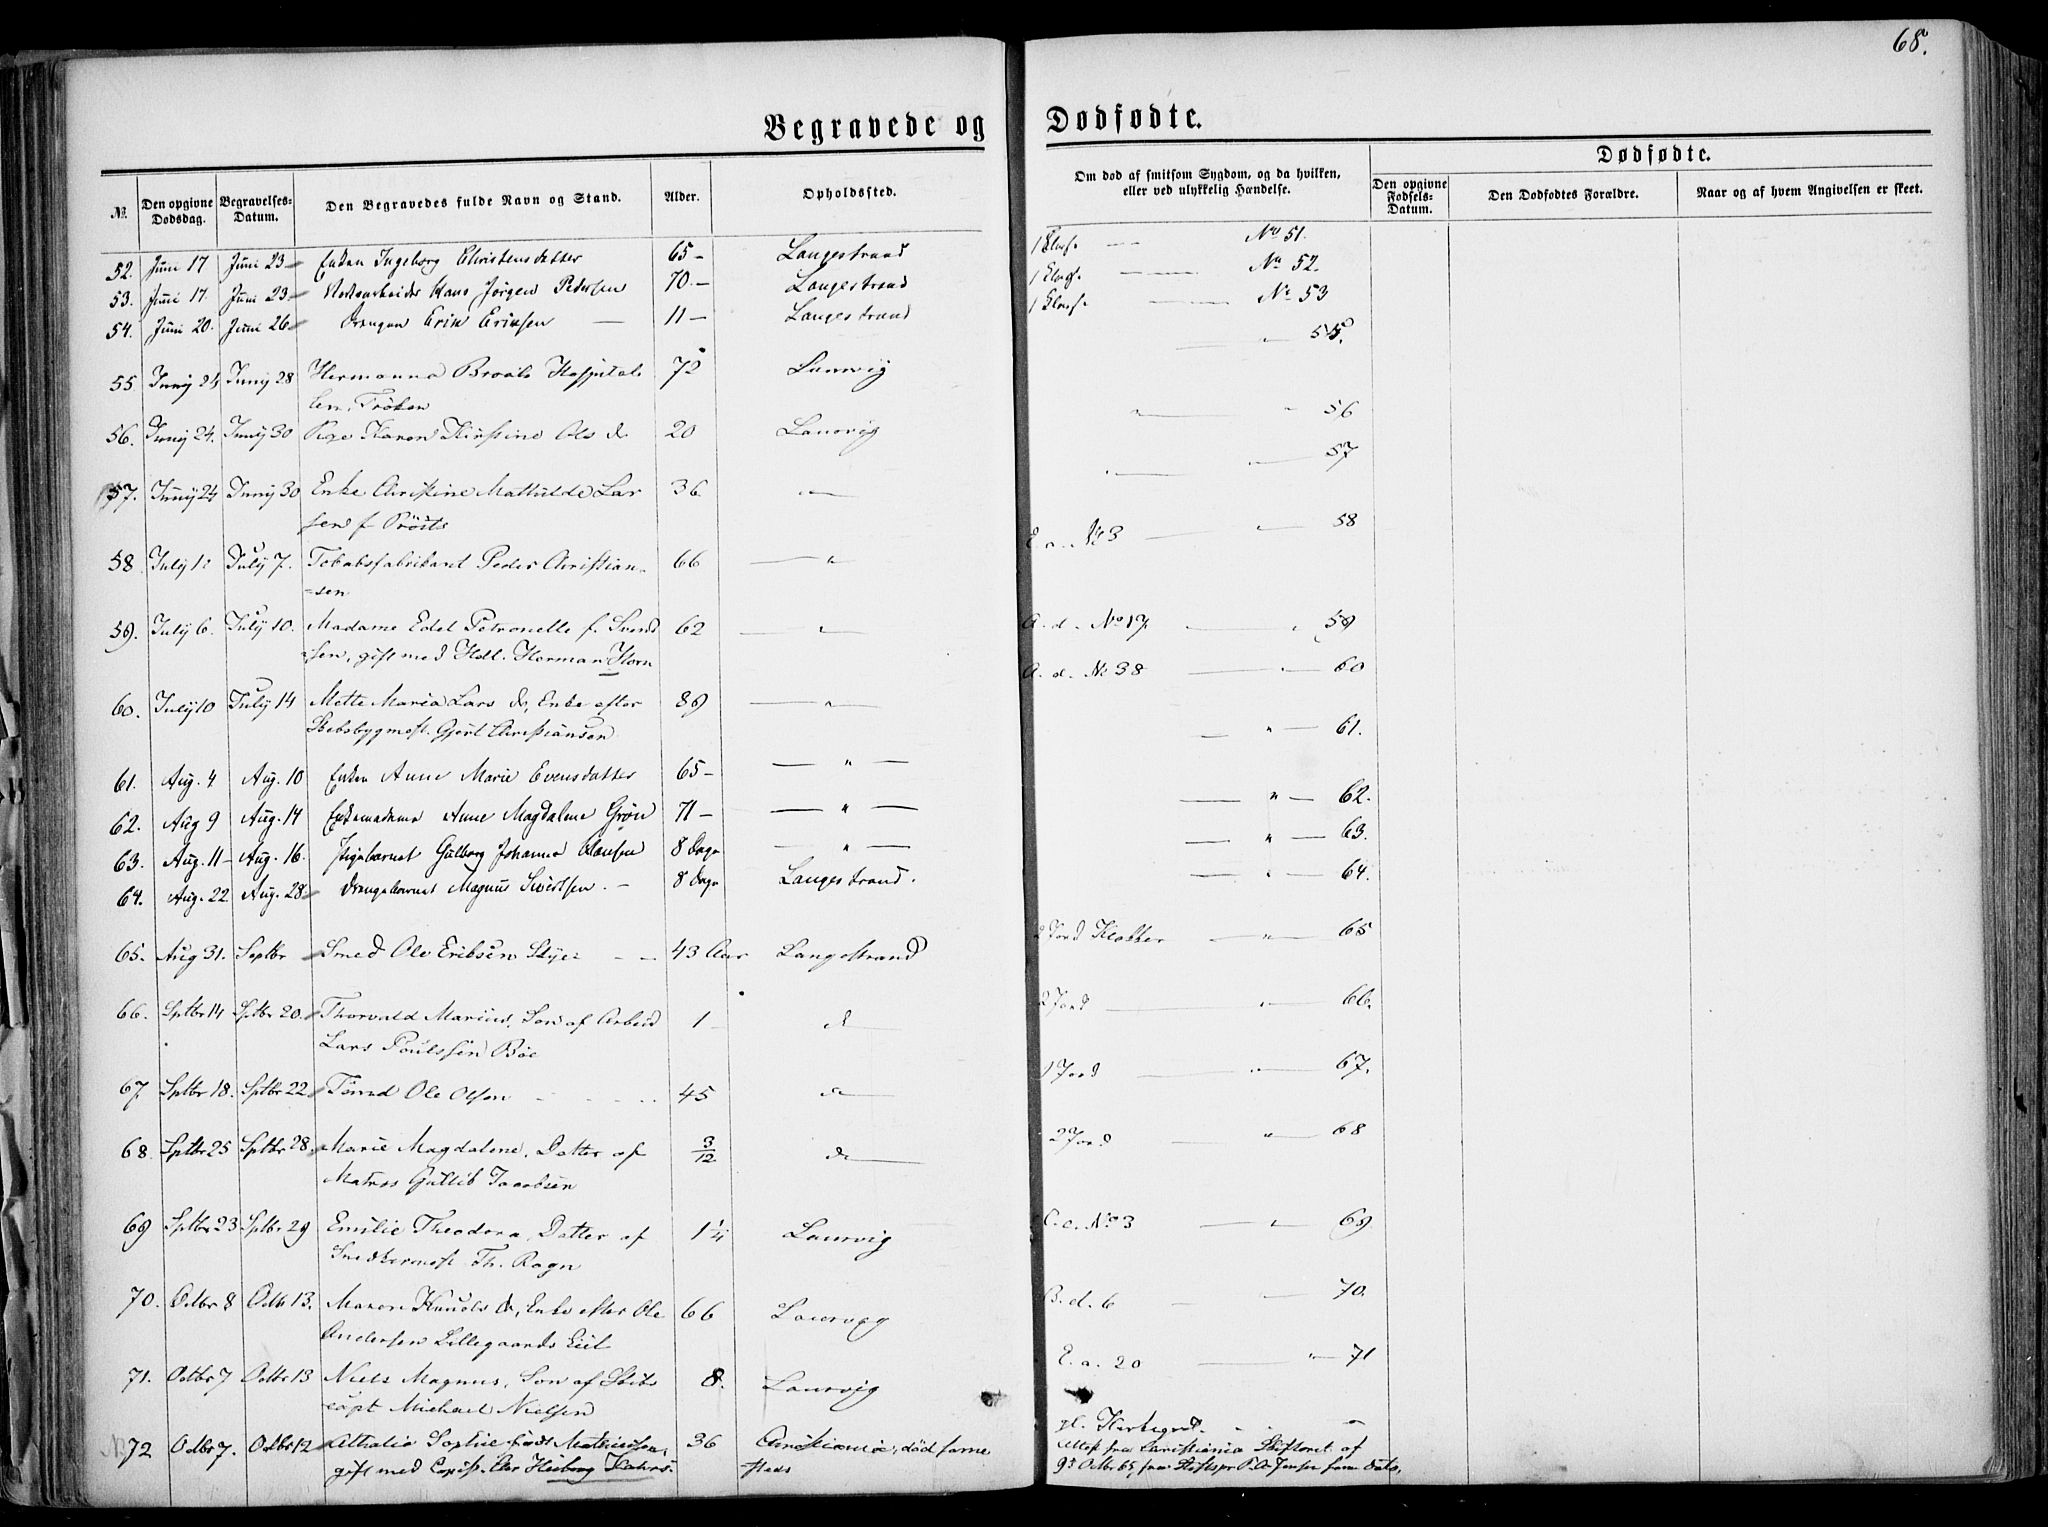 68.
Begravede og Dødfødte.
№
Den opgivne Dødsdag.
Begravelses-Datum.
Den Begravedes fulde Navn og Stand.
Alder.
Opholdssted.
Om død af smitsom Sygdom, og da hvilken, eller ved ulykkelig Hændelse.
Dødfødte.
Den opgivne Fødsels-Datum.
Den Dødfødtes Forældre.
Naar og af hvem Angivelsen er skeet.
52. Juni 17 Juni 23 Enken Ingeborg Christensdatter 65 Langestrand 1 Klasse No 51.
53. Juni 17. Juni 23 Hans Jørgen Pedersen 70 Langestrand 1 Klasse No 52.
54. Juni 20. Juni 26 Drengen Erik Eriksen 11 Langestrand 1 Klasse No 53
55. Juny 24 Juny 28 Hermanna Hospitals 72 Laurvig 55.
lem, Frøken
56. Juny 24. Juny 30 Pige Karen Kirstine Ols d. 20 Laurvig 56
57. Juny 24 Juny 30 Enke Christine Mathilde Lar 36 " 57
sen f. Prösts
58 July 1. July 7. Tobaksfabrikant Peder Christian- 66 " E. a. No 3 " 58
=sen
59. July 6. July 10. Madame Edel Petronelle f. Svend 62 " A. d. No 17. " 59
sen, gift med Hdl. Herman Horn
60. July 10 July 14 Mette Maria Lars d., Enke efter 89 " A. d. No 38 " 60
Skibsbygmest. Gjert Christiansen
61. Aug. 4 Aug. 10 Enken Anne Marie Evensdatter 65 " " 61.
62. Aug 9 Aug. 14 Enkemadame Anne Magdalene Grøn 71 " " 62.
63. Aug. 11 Aug. 16. Pigebarnet Gulborg Johanne Hansen 8 Dage " " 63.
64. Aug. 22 Aug. 28 Drengebarnet Magnus Sivertsen. 8 Dage Langestrand. " 64.
65. Aug 31. Septbr Smed Ole Eriksen 43 Aar Langestrand 2 Jord Klokker " 65
66. Sptbr 14 Sptbr 20. Thorvald Marius, Søn af Arbeid 1 d 2 Jord " 66.
Lars Poulssen Bøe
67. Sptbr 18. Sptbr 22 Ole Olsen 45 d 1 Jord " 67.
68. Sptbr 25 Sptbr 28. Marie Magdalene, Datter af 3/12 d 2 Jord " 68
Matros Gutlib Jacobsen
69 Sptbr 23 Sptbr 29 Emilie Theodora, Datter af 1 1/4 Laurvig C. c. No 3 " 69
Snedkermest Th. Ragn
70. Octbr 8 Octbr 13. Maren Knuds d., Enke efter Ole 66 Laurvig B. d. 6 " 70.
Andersen Lillegaards Eiet
71. Octbr 7 Octbr 13 Niels Magnus, Søn af Skibs 8. Laurvig E. a. 20 " 71
capt Michael Nielsen
72 Octbr 7. Octbr 12 Athalia Sophie født Mathiesen, 36 Christiania, død samme gl. Kirkegrd.
gift med Heiberg steds Attest fra Christiania af
9d Octbr 65, fra Jensen samm Dato.